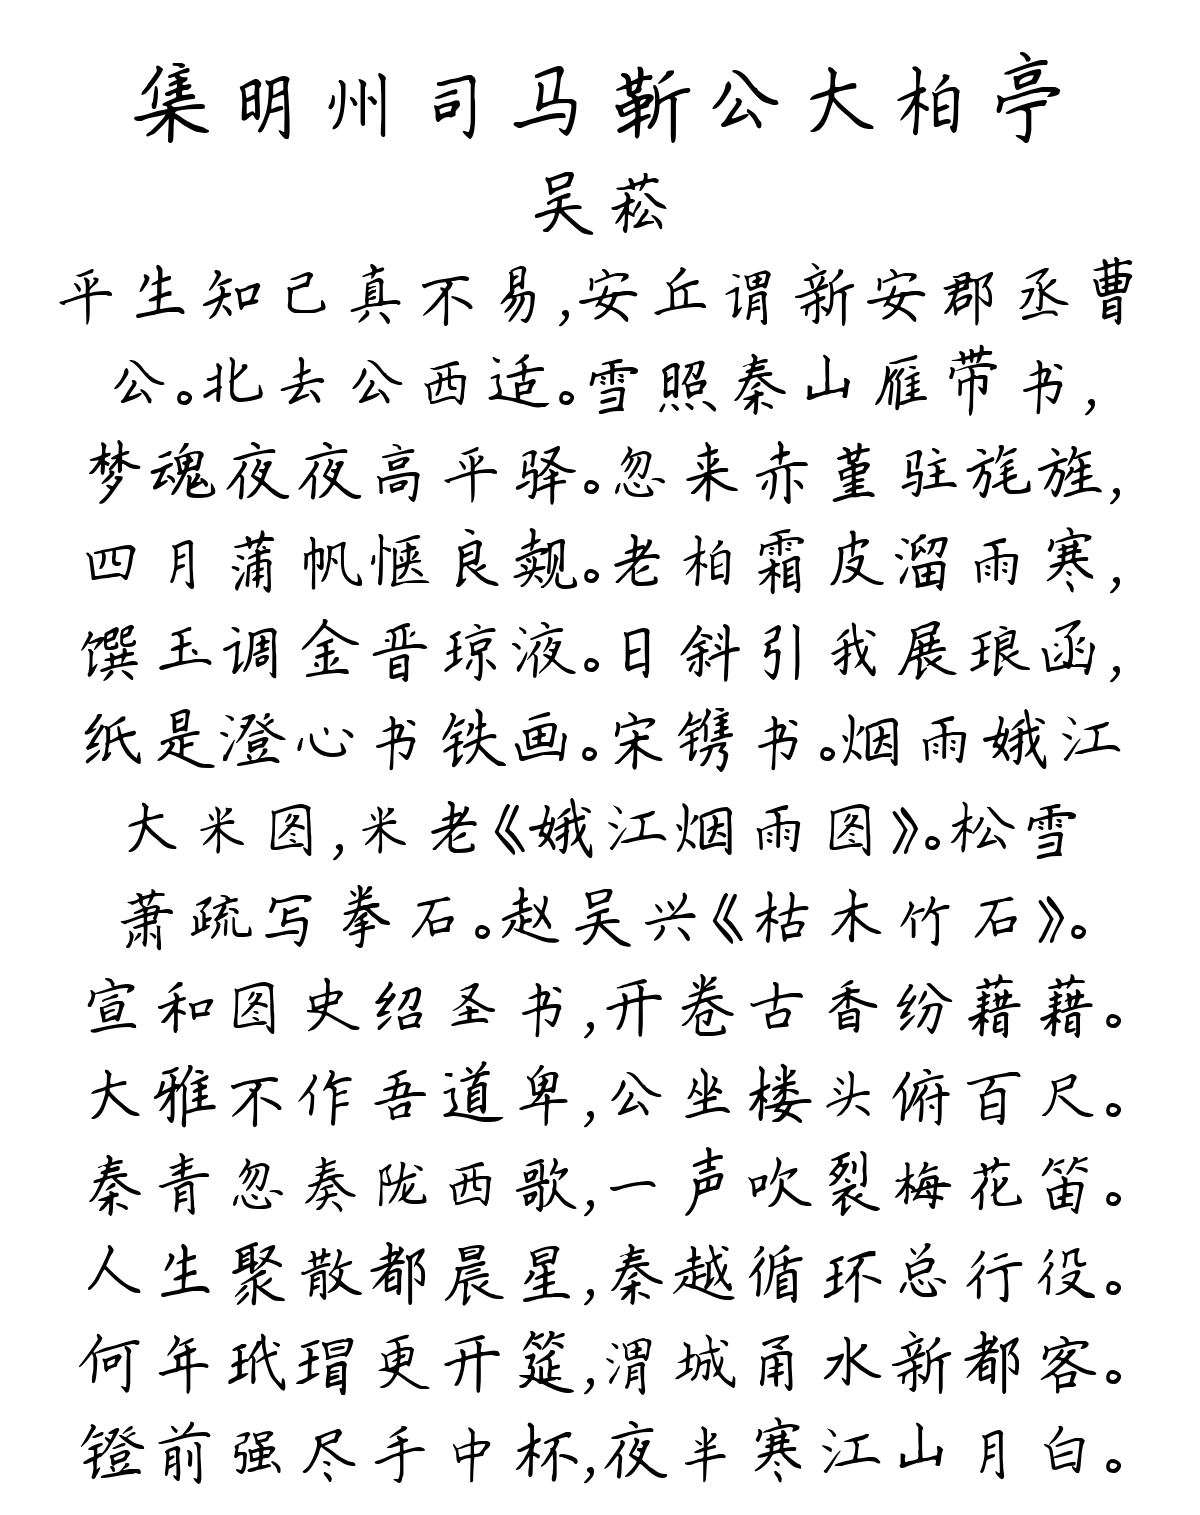 集明州司马靳公大柏亭
吴菘
平生知己真不易,安丘谓新安郡丞曹
公。北去公西适。雪照秦山雁带书,
梦魂夜夜高平驿。忽来赤堇驻旄旌,
四月蒲帆惬良觌。老柏霜皮溜雨寒,
馔玉调金晋琼液。日斜引我展琅函,
纸是澄心书铁画。宋镌书。烟雨娥江
大米图,米老《娥江烟雨图》。松雪
萧疏写拳石。赵吴兴《枯木竹石》。
宣和图史绍圣书,开卷古香纷藉藉。
大雅不作吾道卑,公坐楼头俯百尺。
秦青忽奏陇西歌,一声吹裂梅花笛。
人生聚散都晨星,秦越循环总行役。
何年玳瑁更开筵,渭城甬水新都客。
镫前强尽手中杯,夜半寒江山月白。